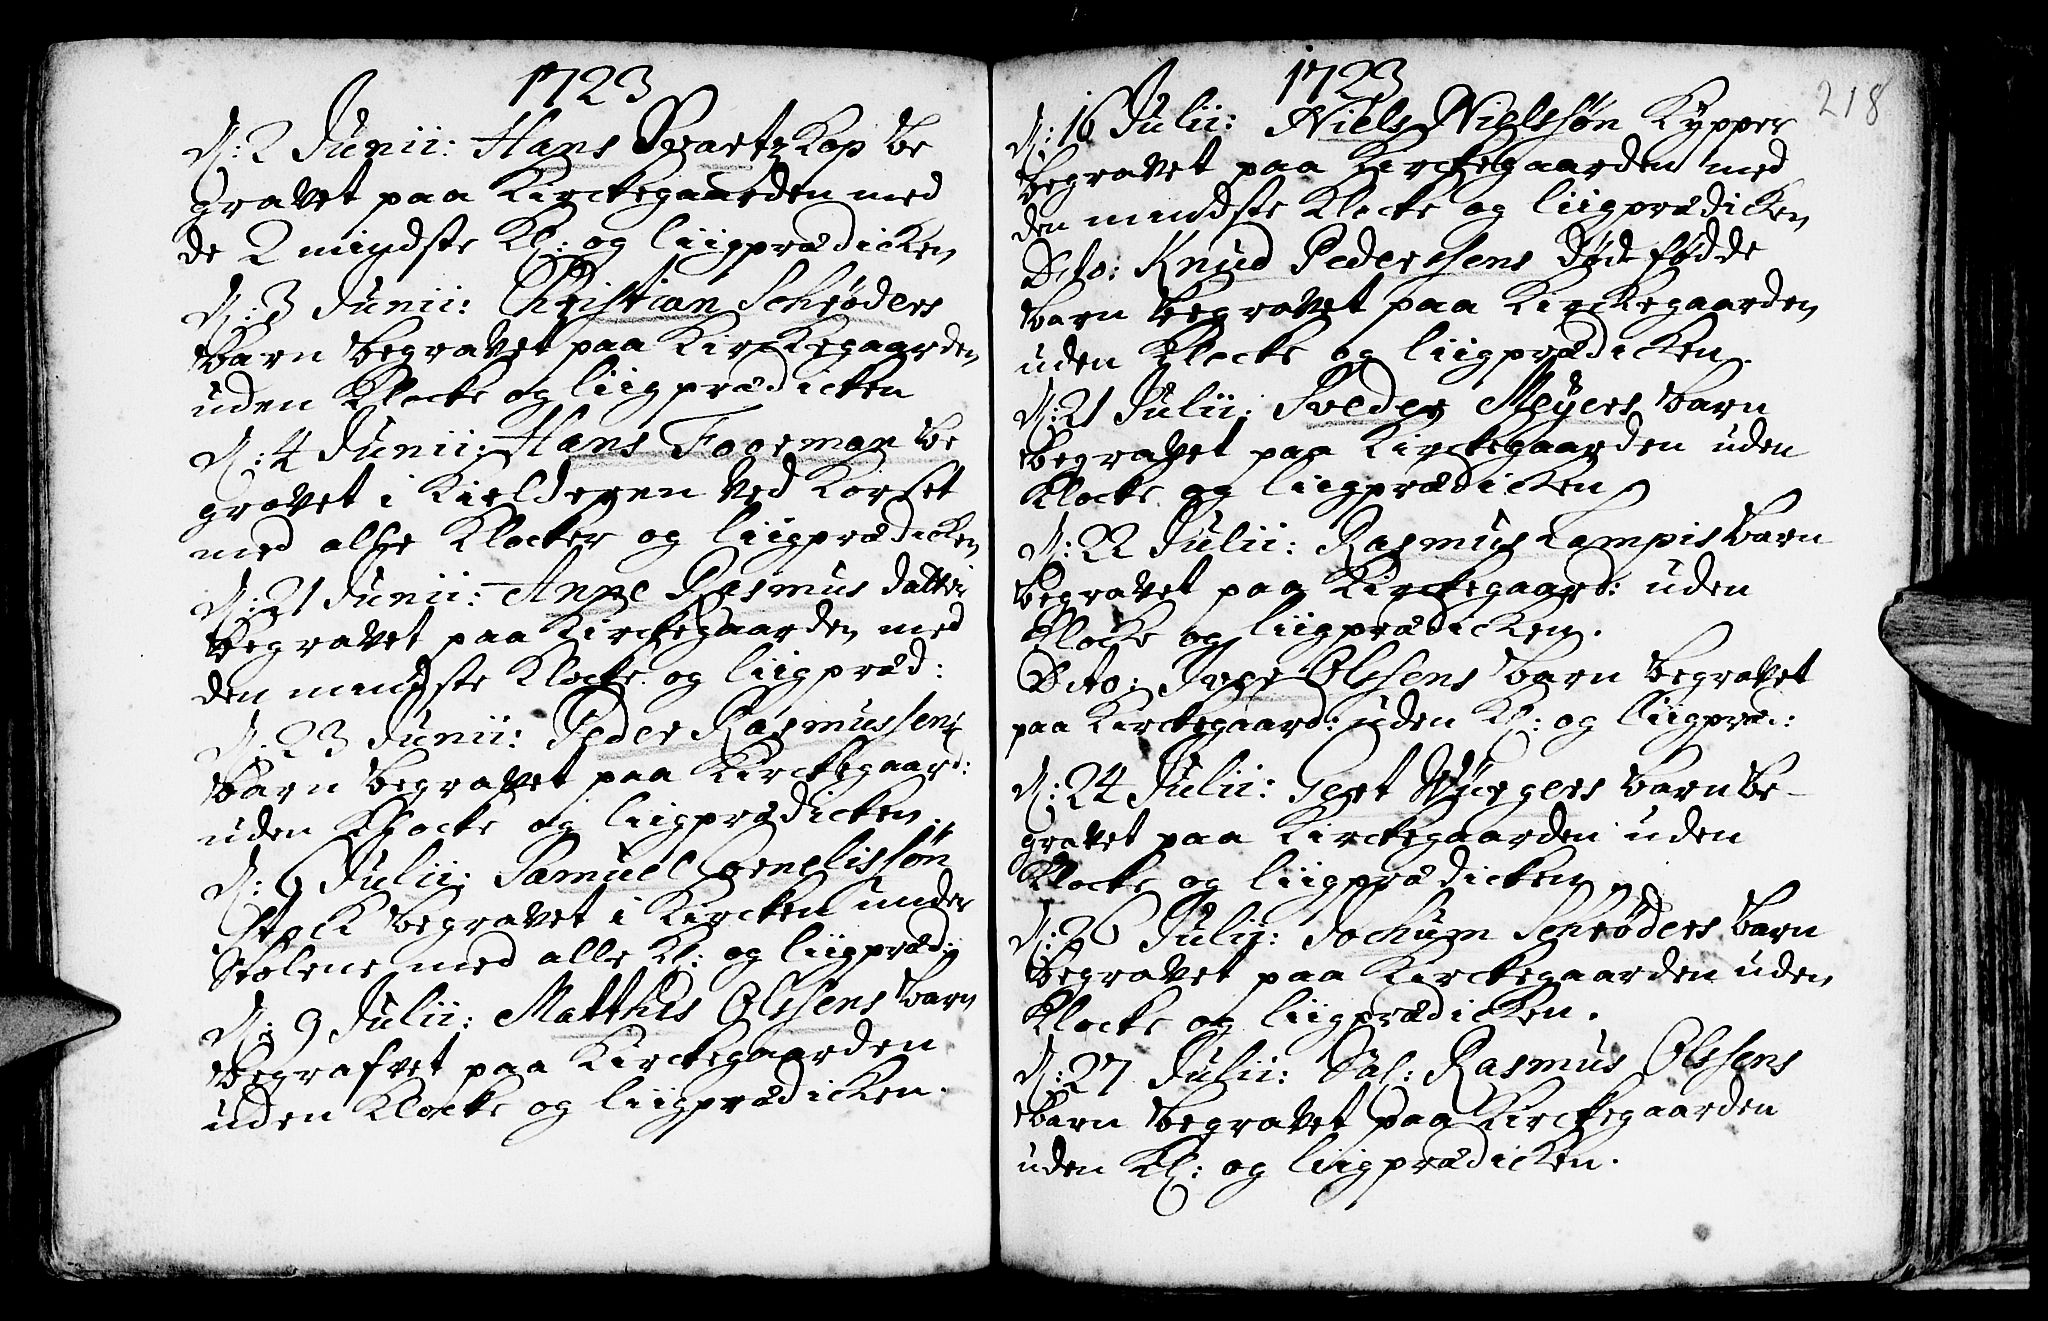 1723
D: 2 Junii: Hans Svartzkop be
gravet paa Kirckegaarden med
de 2 mindste Kl: og liigprædicken
D: 3 Junii: Christian Schrøders
barn begravet paa Kirckegaarden
uden Klocke og liigprædicken
D: 4 Junii: Hans Fooerman be
gravet i Kielderen ved Korset
med alle Klocker og liigprædicken
D: 21 Junii: Anne Rasmus datter
begravet paa Kirckegaarden med
den mindste Klocke og liigpræd:
D: 23 Junii: Peder Rasmussens
barn begravet paa Kirckegaard:
uden Klocke og liigprædicken.
D: 6 Julii: Samuel Cornelissøn
Stock begravet i Kircken under
Stolene med alle Kl: og liigpræd:
D: 9 Julii: Matthis Olssens barn
begrafvet paa Kirckegaarden
uden Klocke og liigprædicken.
1723
218
D: 16 Julii: Niels Nielssøn Kypper
begravet paa Kirckegaarden med
den mindste Klocke og liigprædicken
Dito: Knud Pederssens dødfødde
barn begravet paa Kirckegaarden
uden Klocke og liigprædicken.
D: 21 Julii: Sveder Meyers barn
begravet paa Kirckegaarden uden
Klocke og liigprædicken
D: 22 Julii: Rasmus Lampis barn
begravet paa Kirckegaard: uden
Klocke og liigprædicken.
Dito: Iver Olssens barn begravet
paa Kirckegaard: uden Kl: og liigpræ:
D: 24 Julii: Gert Würgers barn be-
gravet paa Kirckegaarden uden
Klocke og liigprædicken
D: 26 Julii: Jochum Schrøders barn
begravet paa Kirckegaarden uden
Klocke og liigprædicken.
D: 27 Julii: Sal: Rasmus Olssens
barn begravet paa Kirckegaarden
uden Kl: og liigprædicken.